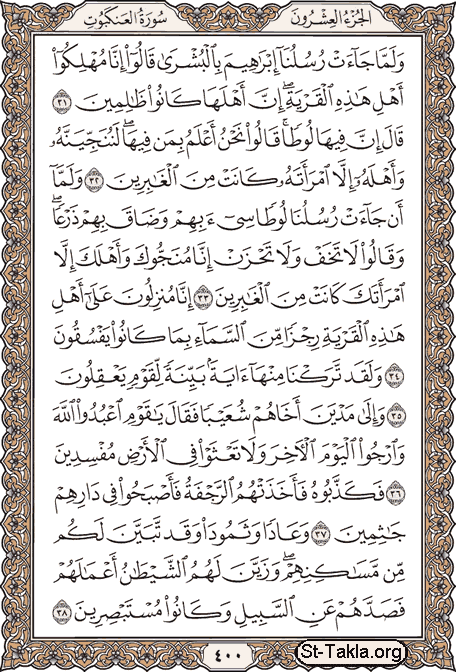 الجزء العشرون سورة العنكبوت
وَلَمَّا جَآءَتْ رُسُلُنَآ إِبْرَٰهِيمَ بِٱلْبُشْرَىٰ قَالُوٓا۟ إِنَّا مُهْلِكُوٓا۟
أَهْلِ هَٰذِهِ ٱلْقَرْيَةِ ۖ إِنَّ أَهْلَهَا كَانُوا۟ ظَٰلِمِينَ ٣١
قَالَ إِنَّ فِيهَا لُوطًا ۚ قَالُوا۟ نَحْنُ أَعْلَمُ بِمَن فِيهَا ۖ لَنُنَجِّيَنَّهُۥ
وَأَهْلَهُۥٓ إِلَّا ٱمْرَأَتَهُۥ كَانَتْ مِنَ ٱلْغَٰبِرِينَ ٣٢ وَلَمَّآ
أَن جَآءَتْ رُسُلُنَا لُوطًا سِىٓءَ بِهِمْ وَضَاقَ بِهِمْ ذَرْعًا ۖ
وَقَالُوا۟ لَا تَخَفْ وَلَا تَحْزَنْ ۖ إِنَّا مُنَجُّوكَ وَأَهْلَكَ إِلَّا
ٱمْرَأَتَكَ كَانَتْ مِنَ ٱلْغَٰبِرِينَ ٣٣ إِنَّا مُنزِلُونَ عَلَىٰٓ أَهْلِ
هَٰذِهِ ٱلْقَرْيَةِ رِجْزًا مِّنَ ٱلسَّمَآءِ بِمَا كَانُوا۟ يَفْسُقُونَ
٣٤ وَلَقَد تَّرَكْنَا مِنْهَآ ءَايَةًۢ بَيِّنَةً لِّقَوْمٍ يَعْقِلُونَ
٣٥ وَإِلَىٰ مَدْيَنَ أَخَاهُمْ شُعَيْبًا فَقَالَ يَٰقَوْمِ ٱعْبُدُوا۟ ٱللَّهَ
وَٱرْجُوا۟ ٱلْيَوْمَ ٱلْءَاخِرَ وَلَا تَعْثَوْا۟ فِى ٱلْأَرْضِ مُفْسِدِينَ
٣٦ فَكَذَّبُوهُ فَأَخَذَتْهُمُ ٱلرَّجْفَةُ فَأَصْبَحُوا۟ فِى دَارِهِمْ
جَٰثِمِينَ ٣٧ وَعَادًا وَثَمُودَا۟ وَقَد تَّبَيَّنَ لَكُم
مِّن مَّسَٰكِنِهِمْ ۖ وَزَيَّنَ لَهُمُ ٱلشَّيْطَٰنُ أَعْمَٰلَهُمْ
فَصَدَّهُمْ عَنِ ٱلسَّبِيلِ وَكَانُوا۟ مُسْتَبْصِرِينَ ٣٨
٤٠٠
St-Takla.org